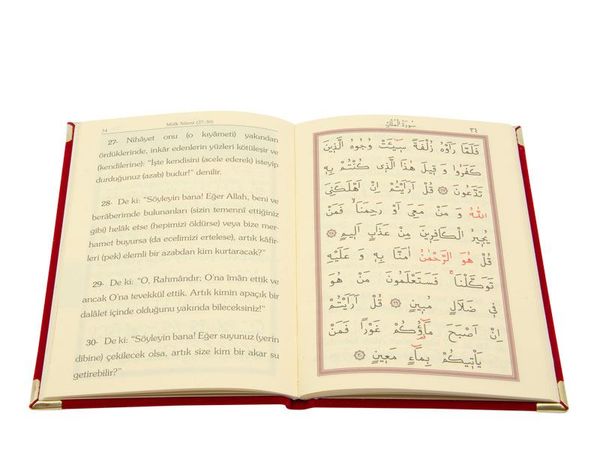 34
Mülk Sûresi (27-30)
27- Nihâyet onu (o kıyâmeti) yakından
ördüklerinde, inkâr edenlerin yüzleri kötüleşir ve
(kendilerine): “İşte kendisini (acele ederek) isteyip
durduğunuz (azab) budur!” denilir.
28- De ki: “Söyleyin bana! Eğer Allah, beni ve
berâberimde bulunanları (sizin temenni ettiğiniz
gibi) helâk etse (hepimizi öldürse) veya bize mer-
hamet buyursa (da ecelimizi ertelese), artık kâfir-
leri (pek) elemli bir azabdan kim kurtaracak?”
29- De ki: “O, Rahmândır; O'na îmân ettik ve
ancak O'na tevekkül ettik. Artık kimin apaçık bir
dalâlet içinde olduğunu yakında bileceksiniz!”
30- De ki: “Söyleyin bana! Eğer suyunuz (yerin
dibine) çekilecek olsa, artık size kim bir akar su
getirebilir?”
سُورَةُ الْمُلْكِ
٣٤
فَلَمَّا رَاَوْهُ زُلْفَةً سٖٓيـَٔتْ وُجُوهُ الَّذٖينَ
كَفَرُوا وَ قٖيلَ هٰذَا الَّذٖى كُنْتُمْ بِهٖ
تَدَّعُونَ ۞ قُلْ اَرَاَيْتُمْ اِنْ اَهْلَكَنِىَ
اللّٰهُ وَ مَنْ مَعِىَ اَوْ رَحِمَنَا ۙ فَمَنْ
يُجٖيرُ الْكَافِرٖينَ مِنْ عَذَابٍ اَلٖيمٍ ۞
قُلْ هُوَ الرَّحْمٰنُ اٰمَنَّا بِهٖ وَ عَلَيْهِ
تَوَكَّلْنَا ۚ فَسَتَعْلَمُونَ مَنْ هُوَ
فٖى ضَلَالٍ مُبٖينٍ ۞ قُلْ اَرَاَيْتُمْ
اِنْ اَصْبَحَ مَٓاؤُ۬كُمْ غَوْرًا فَمَنْ
يَاْتٖيكُمْ بِمَٓاءٍ مَعٖينٍ ۞